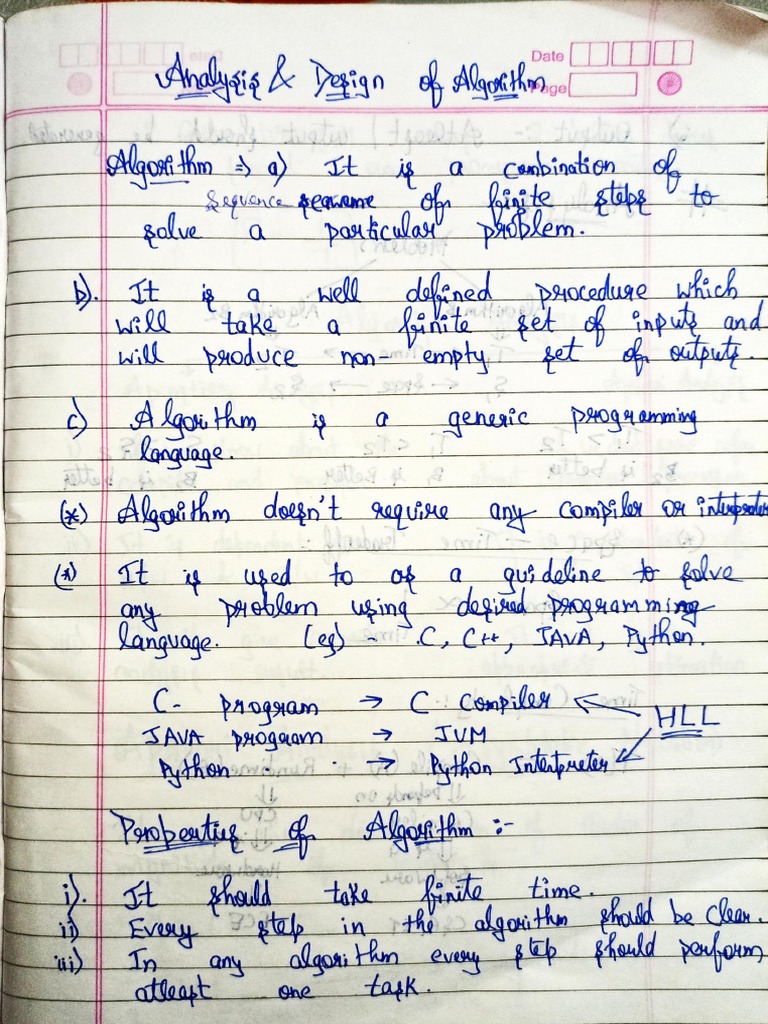 Date
Page
Analysis & Design of Algorithm
Algorithm ⇒ a) It is a combination of
sequence of finite steps to
solve a particular problem.
b). It is a well defined procedure which
will take a finite set of inputs and
will produce non-empty set of outputs.
c) Algorithm is a generic programming
language.
(*) Algorithm doesn't require any compiler or interpreter
(*) It is used to as a guideline to solve
any problem using desired programming
language. (eg) - C, C++, JAVA, Python.
C- program → C Compiler
HLL
JAVA program → JVM
Python → Python Interpreter
Properties of Algorithm :-
i). It should take finite time.
ii) Every step in the algorithm should be clear.
iii) In any algorithm every step should perform
atleast one task.